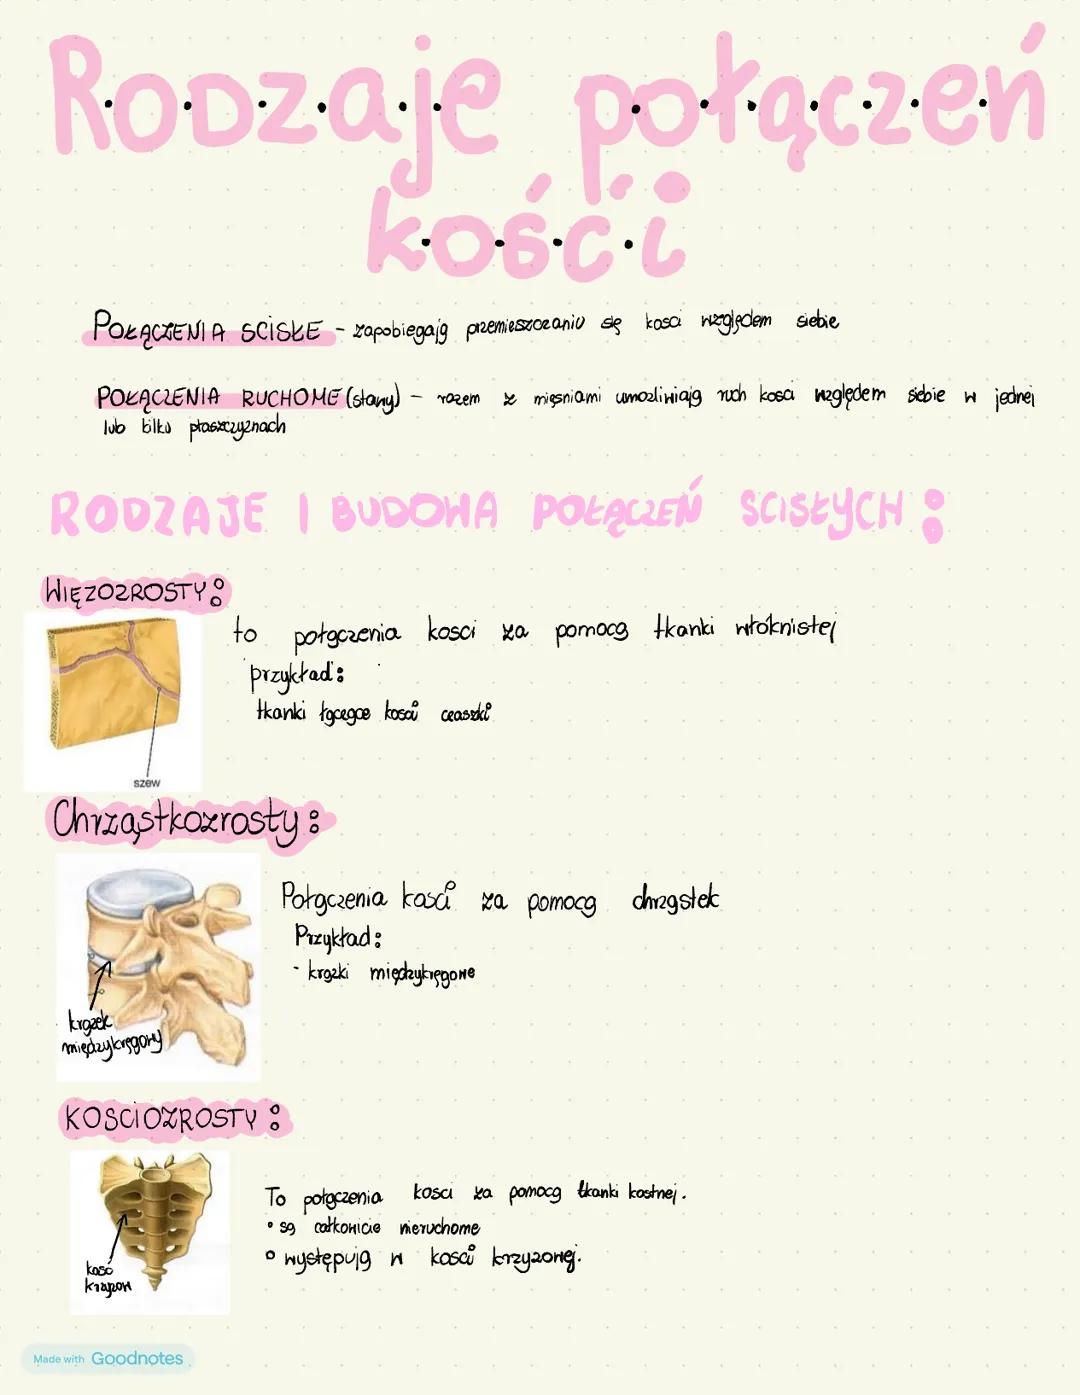 Rodzaje połączeń
kości
POŁĄCZENIA SCISŁE - zapobiegają przemieszczaniu się kosci względem siebie
POŁĄCZENIA RUCHOME (stawy) - razem z mięsniami umozliwiają ruch kosci względem siebie w jednej
lub kilku płaszczyznach
RODZAJE I BUDOWA POŁĄCZEŃ SCISŁYCH:
WIĘZOZROSTY:
to połączenia kosci za pomocą tkanki włóknistej
przykład:
tkanki kości czaszki
szew
Chrząstkozrosty:
Połączenia kości za pomocą chrząstek
Przykład:
- krązki międzykręgowe
krązek
międzykręgowy
KOSCIOZROSTY:
To połączenia kosci za pomocą tkanki kostnej.
• są całkowicie nieruchome
• występują w kości krzyzowej.
kość
Made with Goodnotes